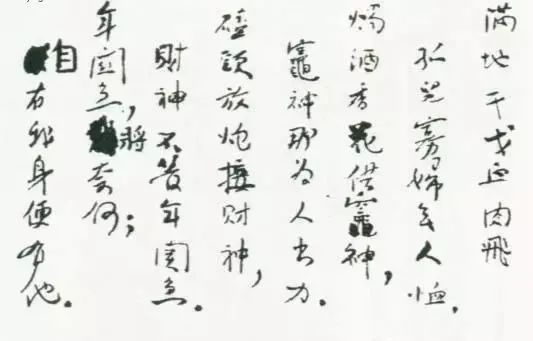 满地干戈血肉飛
孤兒寡婦無人恤。
燭酒香花供竈神,
竈神那為人出力。
磕頭放炮接財神,
財神不管年関急。
年関急,將奈何;
自有我身便有他。